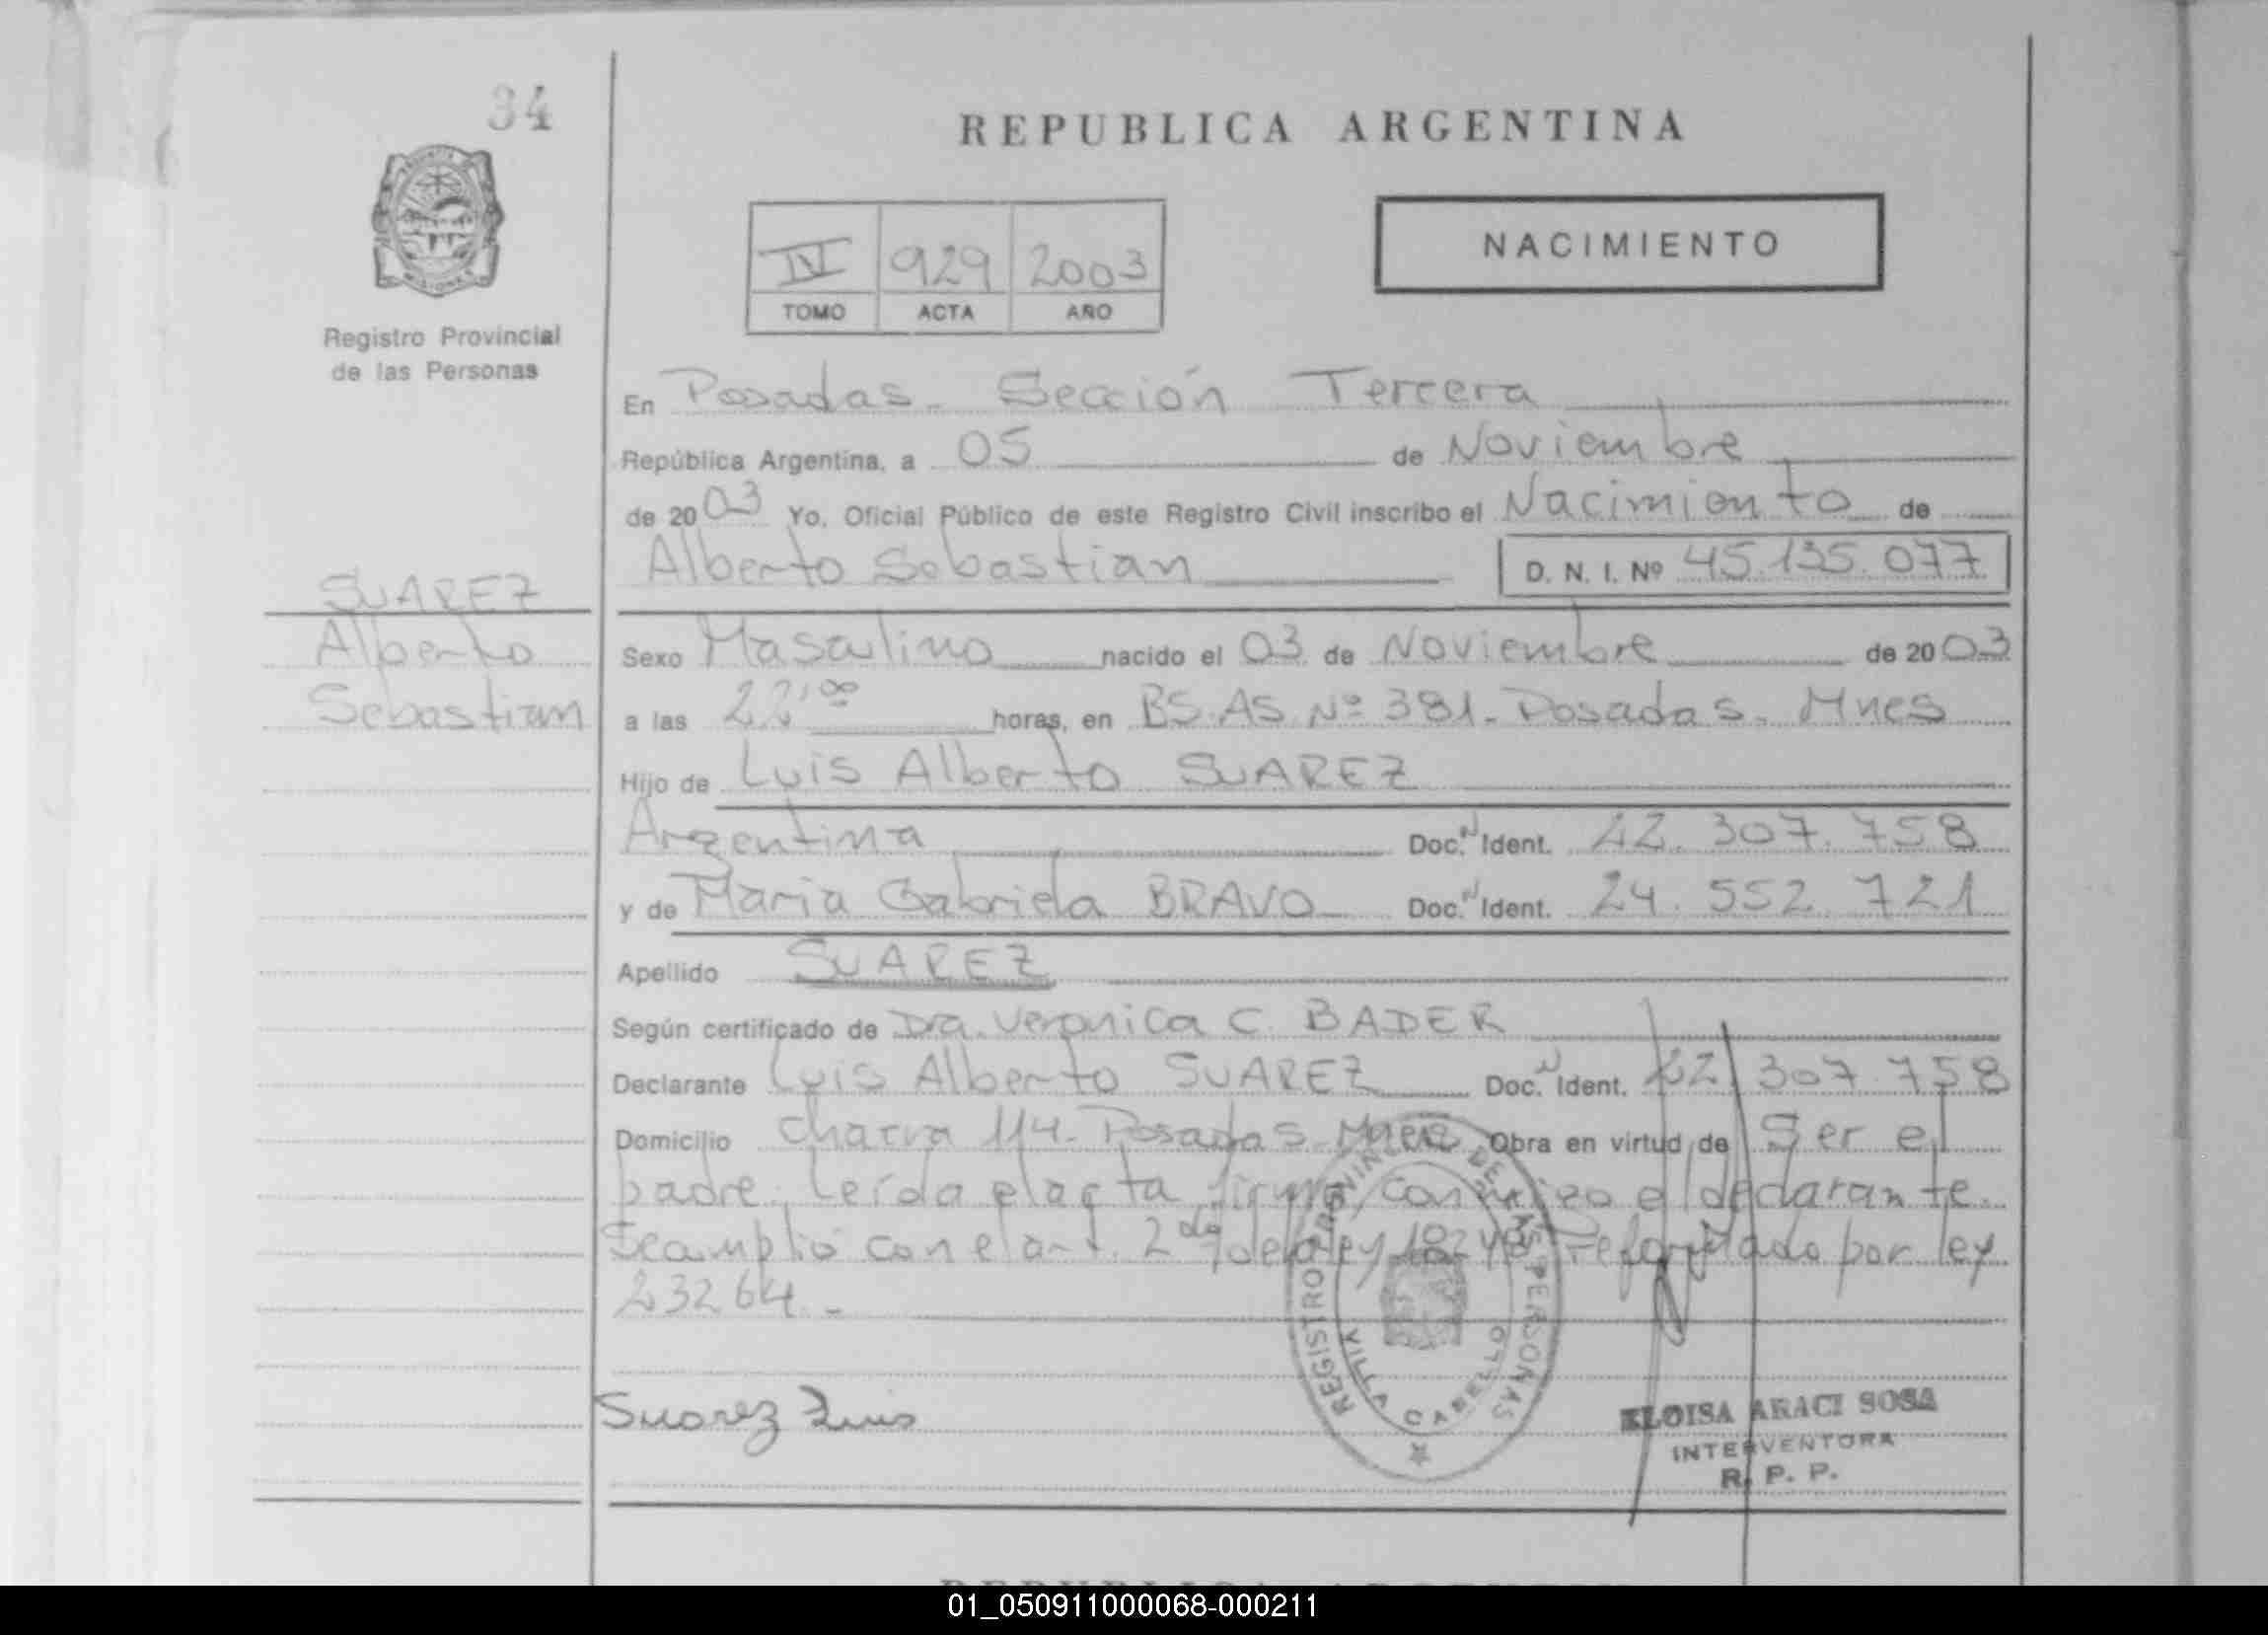 34
REPUBLICA ARGENTINA
IV 929 2003
TOMO ACTA AÑO
NACIMIENTO
Registro Provincial
de las Personas
En Posadas - Sección Tercera
República Argentina, a 05 de Noviembre
de 2003 Yo, Oficial Público de este Registro Civil inscribo el Nacimiento de
Alberto Sebastian D. N. I. Nº 45.135.077
SUAREZ
Alberto
Sebastian
Sexo Masculino nacido el 03 de Noviembre de 2003
a las 22,00 horas, en BS.AS. Nº 381 - Posadas - Mnes
Hijo de Luis Alberto SUAREZ
Argentina Doc. N Ident. 22.307.758
y de Maria Gabriela BRAVO Doc. N Ident. 24.552.721
Apellido SUAREZ
Según certificado de Dra. Veronica C. BADER
Declarante Luis Alberto SUAREZ Doc. N Ident. 22.307.758
Domicilio Chacra 114 - Posadas - Mnes Obra en virtud de Ser el
padre. Leída el acta firma conmigo el declarante.
Se cumplio con el art. 2do de la ley 18248 reformado por ley
23264.-
REGISTRO PROVINCIAL DE LAS PERSONAS
VILLA CABELLO
Suarez Luis
ELOISA ARACI SOSA
INTERVENTORA
R. P. P.
REPUBLICA ARGENTINA
01_050911000068-000211